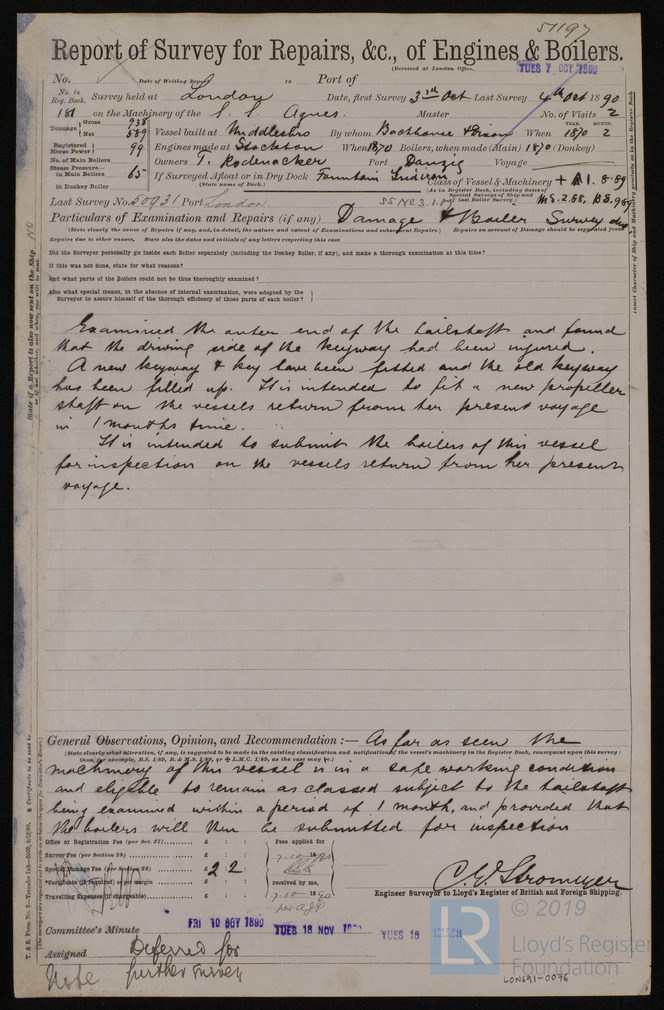 51197
Report of Survey for Repairs, &c., of Engines & Boilers.
(Received at London Office,
TUES 7 OCT 1890
No. Date of Writing Report 18 Port of
No. in Reg. Book. Survey held at London Date, first Survey 3rd Oct Last Survey 4th Oct 1890
181 on the Machinery of the S. S. Agnes. Master No. of Visits 2
Tonnage Gross 938 Net 589 Vessel built at Middlesbro By whom Backhouse & Dixon When YEAR. 1870 MONTH. 2
Registered Horse Power 99 Engines made at Stockton When 1870 Boilers, when made (Main) 1870 (Donkey)
No. of Main Boilers Owners T. Rodenacker Port Danzig Voyage
Steam Pressure— in Main Boilers 65 If Surveyed Afloat or in Dry Dock Fountain
in Donkey Boiler (State name of Dock.) Class of Vessel & Machinery + A1. 8.89
(As in Register Book, including dates of Special Surveys of Ship and of last Boiler Survey.) M.S. 2.88, B.S. 9.89
Last Survey No. 50931 Port London SS No 3.1.89
Particulars of Examination and Repairs (if any) Damage & Boiler Survey due
(State clearly the cause of Repairs if any, and, in detail, the nature and extent of Examinations and subsequent Repairs.) Repairs on account of Damage should be separated from
Repairs due to other causes. State also the dates and initials of any letters respecting this case
Did the Surveyor personally go inside each Boiler separately (including the Donkey Boiler, if any), and make a thorough examination at this time?
If this was not done, state for what reasons?
And what parts of the Boilers could not be thus thoroughly examined?
Also what special means, in the absence of internal examination, were adopted by the
Surveyor to assure himself of the thorough efficiency of those parts of each boiler?
Examined the outer end of the tailshaft and found
that the driving side of the keyway had been injured.
A new keyway & key have been fitted and the old keyway
has been filled up. It is intended to fit a new propeller
shaft on the vessels return from her present voyage
in 1 months time.
It is intended to submit the boilers of this vessel
for inspection on the vessels return from her present
voyage.
General Observations, Opinion, and Recommendation :— As far as seen the
(State clearly what alteration, if any, is suggested to be made in the existing classification and notification of the vessel's machinery in the Register Book, consequent upon this survey:
thus, for example, B.S. 1/89, B. & M.S. 1/89, or + L.M.C. 1/89, as the case may be.)
machinery of this vessel is in a safe working condition
and eligible to remain as classed subject to the tailshaft
being examined within a period of 1 month, and provided that
the boilers will then be submitted for inspection
Office or Registration Fee (per Sec. 27) £ : : Fees applied for
Survey Fee (per Section 28) £ : : 7.10 18 90
Special Damage Fee (per Section 28) £ 2 2
*Certificate (if required) as per margin £ : : received by me,
Travelling Expenses (if chargeable) £ : : 7.10 18 90
C. E. Stromeyer
Engineer Surveyor to Lloyd's Register of British and Foreign Shipping.
Committee's Minute FRI 10 OCT 1890 TUES 18 NOV 1890 TUES 10 MARCH
Assigned Deferred for
Note further survey
© 2019
LR
Lloyd's Register
Foundation
LON691-0076